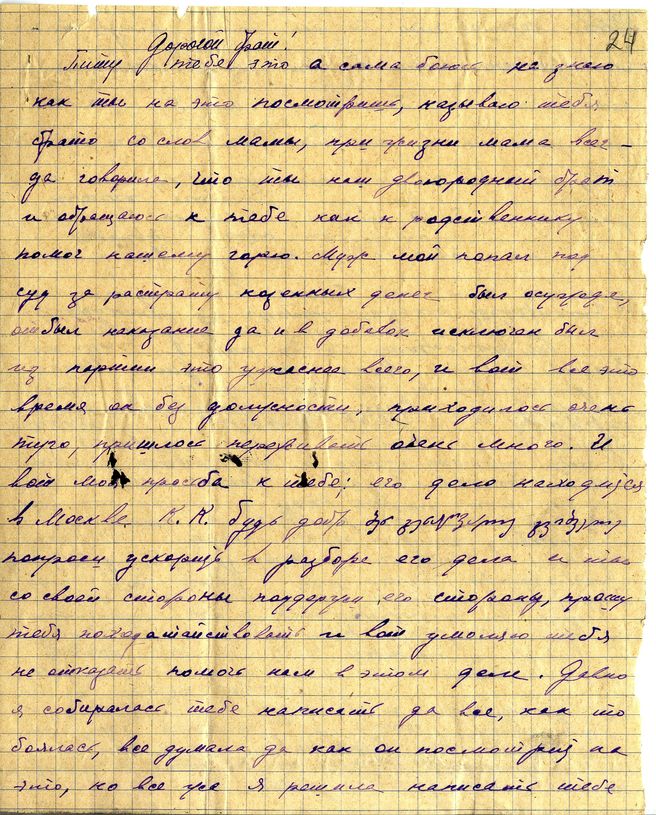 24
Дорогой брат!
Пишу тебе это а сама боюсь не знаю
как ты на это посмотришь, называю тебя
брато со слов мамы, при жизни мама все-
да говорила, что ты наш двоюродный брат
и обращаюсь к тебе как к родственнику
помоч нашему горю. Муж мой попал под
суд за растрату казенных денег был осужден,
отбыл наказание да и в добавок исключен был
из партии это ужаснее всего, и вот все это
время он без должности, приходилось очень
туго, пришлось переживать очень много. И
вот моя просьба к тебе; его дело находится
в Москве К.К. будь добр
попроси ускорить в разборе его дела и ты
со своей стороны поддержи его сторону, прошу
тебя походатайствовать и вот умоляю тебя
не отказать помочь нам в этом деле. Давно
я собиралась тебе написать да все, как то
боялась, все думала да как он посмотрит на
это, но все уже я решила написать тебе